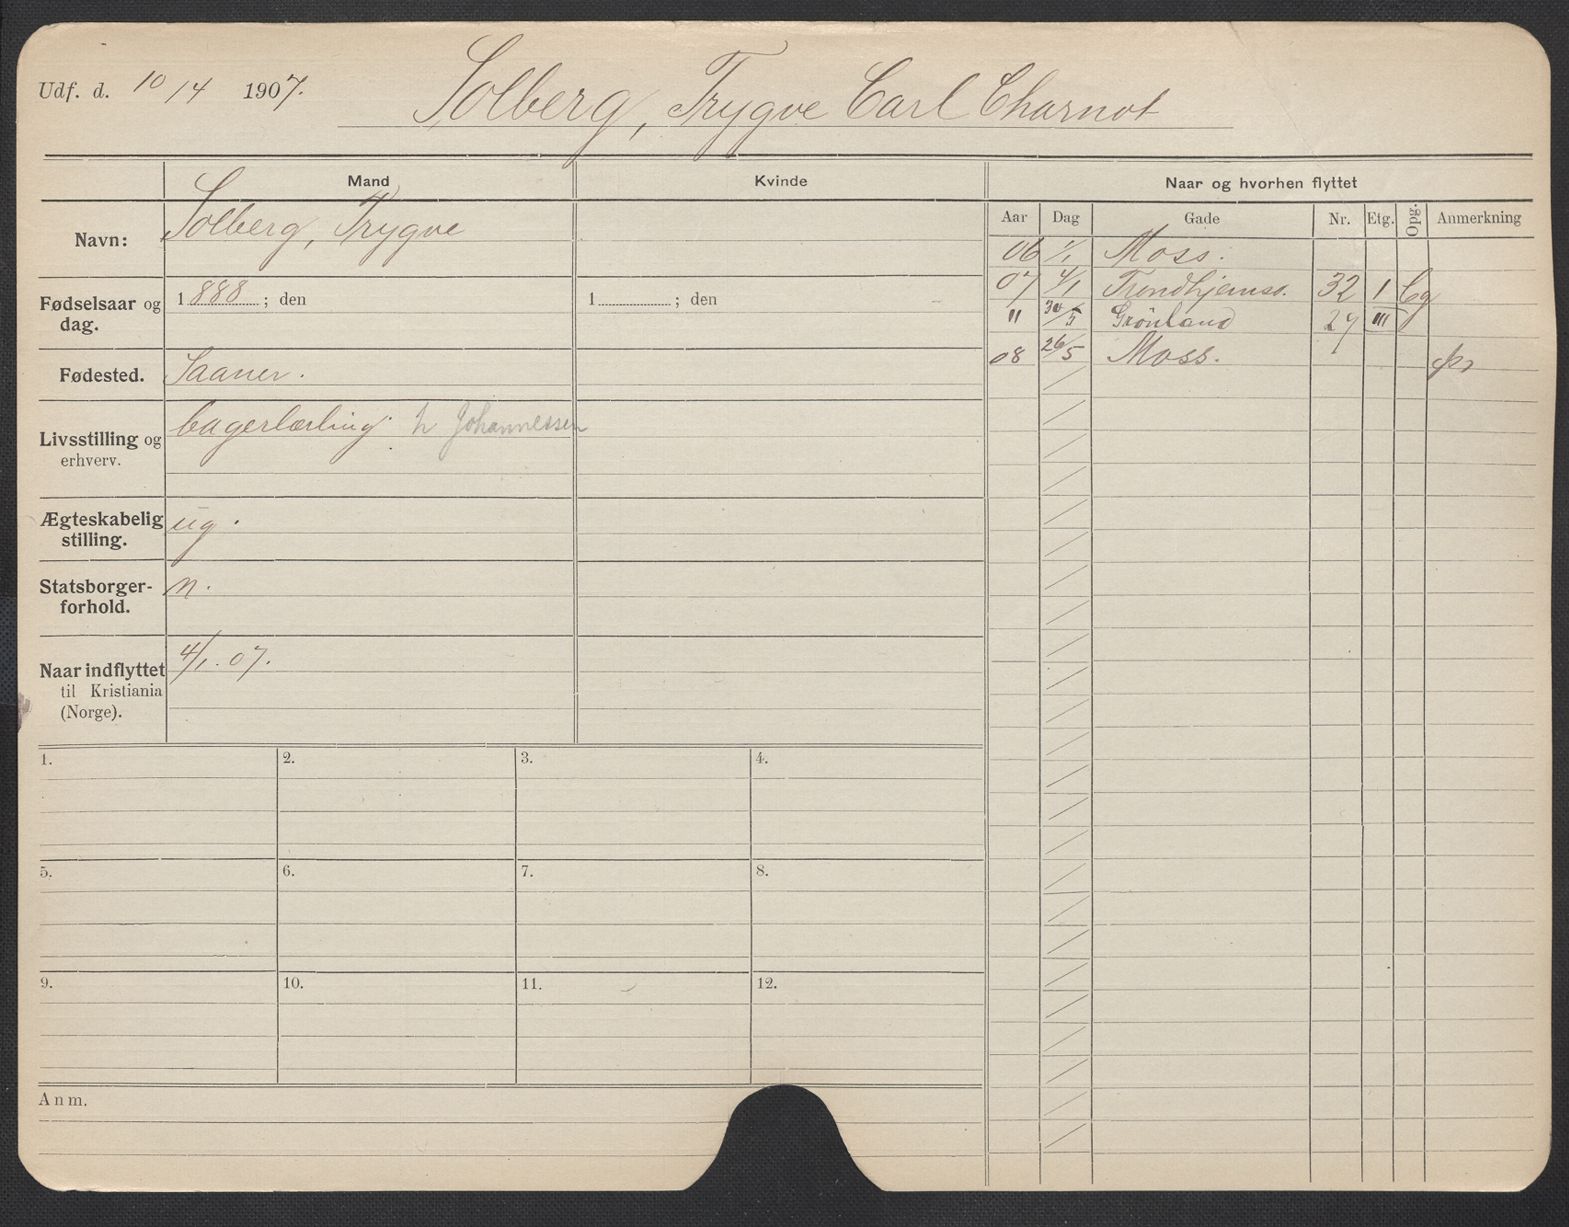 Udf. d. 10/14 1907.
Solberg, Trygve Carl Charnot
Mand Kvinde Naar og hvorhen flyttet
Aar Dag Gade Nr. Etg. Opg. Anmerkning
Navn: Solberg, Trygve
Fødselsaar og dag. 1888; den 1 ; den
Fødested. Saaner.
Livsstilling og erhverv. bagerlærling. h Johannessen
Ægteskabelig stilling. ug.
Statsborgerforhold. n.
Naar indflyttet til Kristiania (Norge). 4/1. 07.
06 1/1 Moss.
07 4/1 Trondhjemsv. 32 1 Cg
" 30/5 Grönland 27 III
08 26/5 Moss.
1. 2. 3. 4.
5. 6. 7. 8.
9. 10. 11. 12.
Anm.